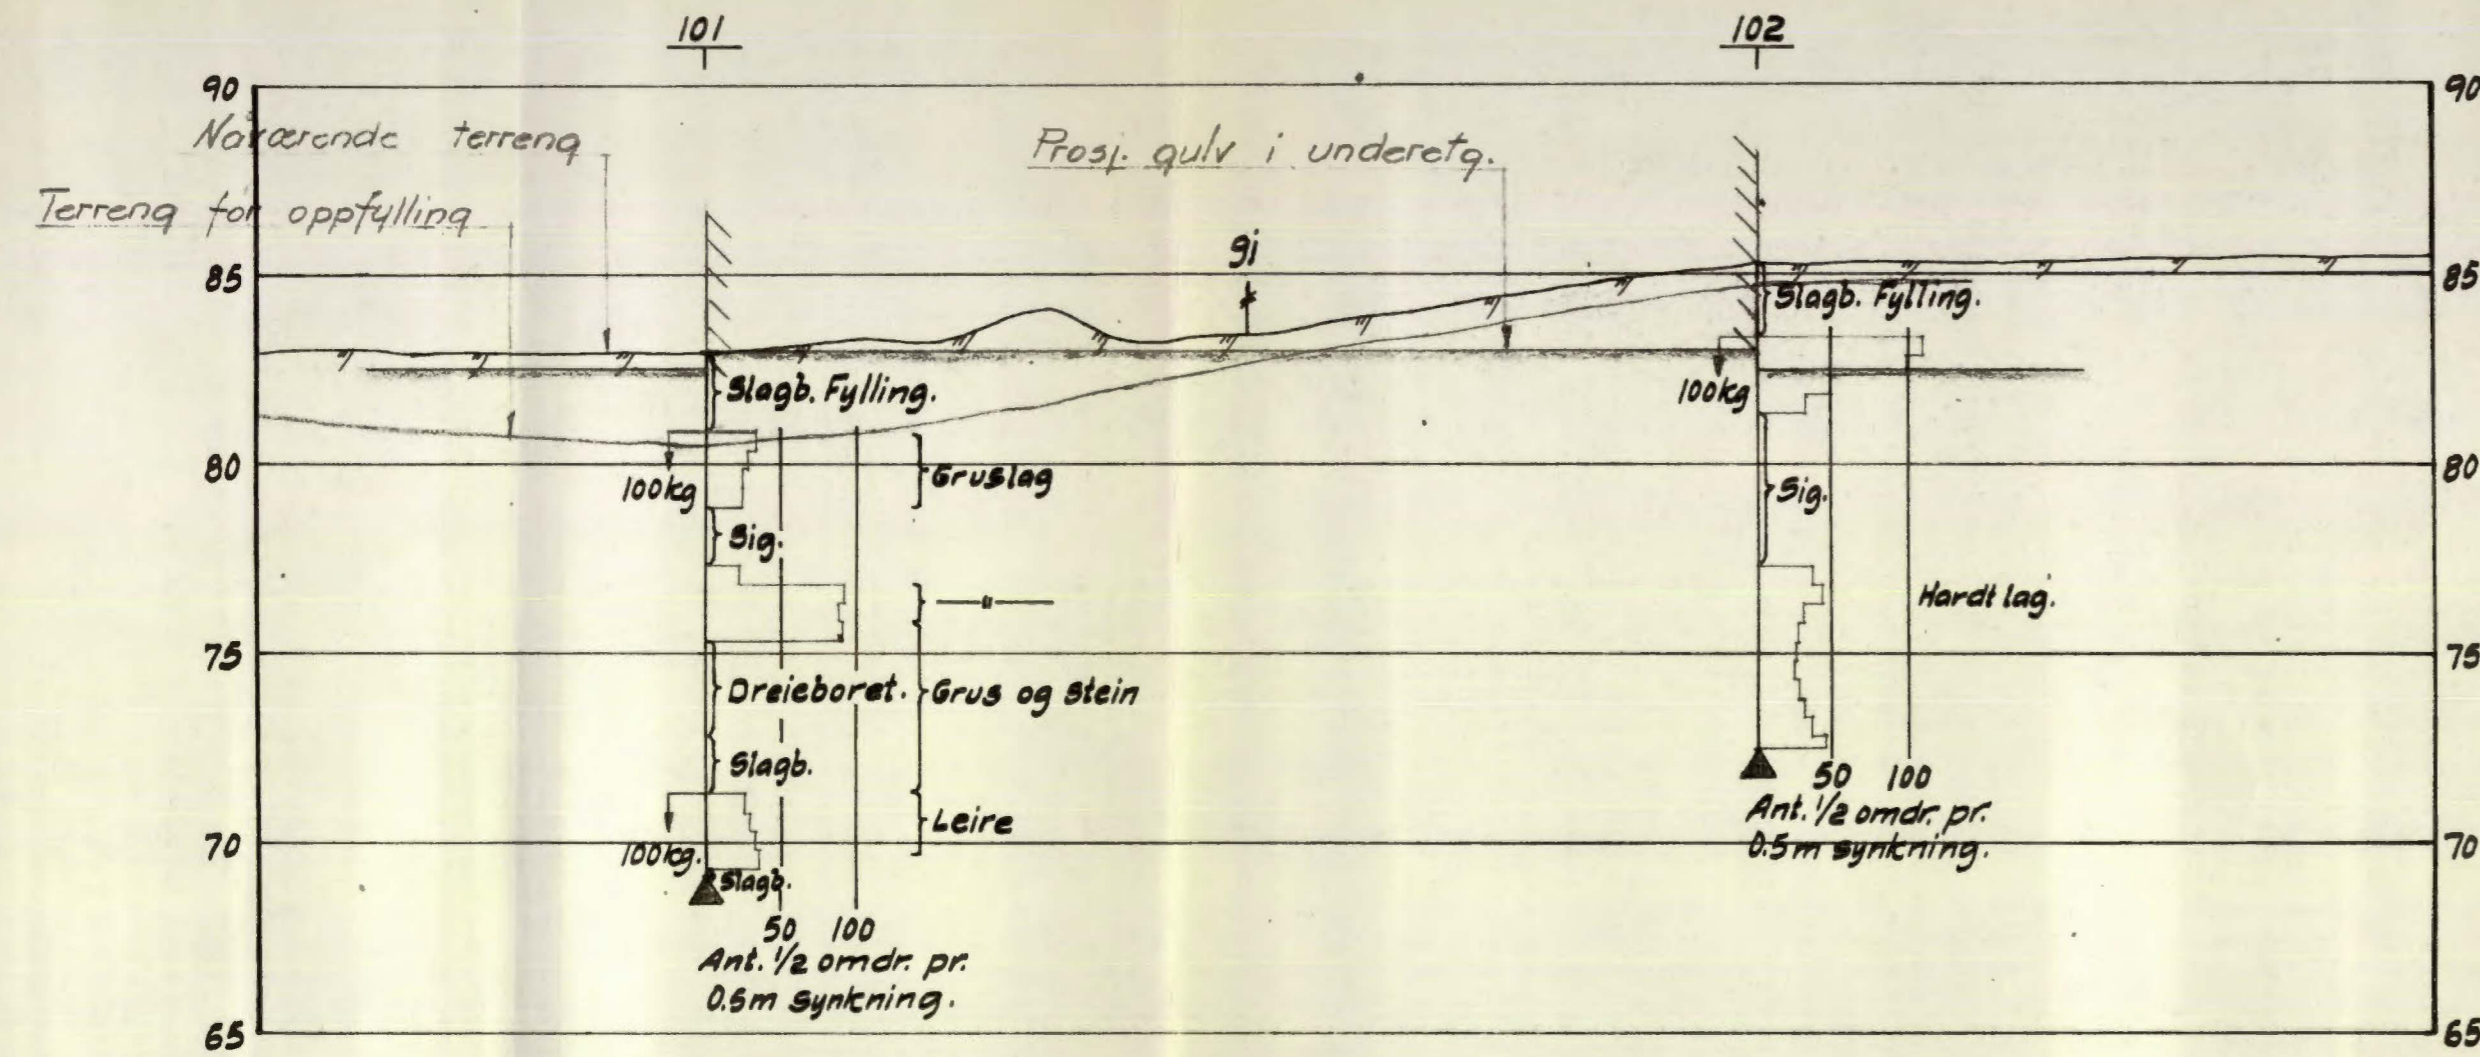 101
102
90
90
Nåværende terreng
Prosj. gulv i underetg.
Terreng før oppfylling
gi
85
85
Slagb. Fylling.
Slagb. Fylling.
100kg
80
80
100kg
Gruslag
Sig.
Sig.
—"—
Hardt lag.
75
75
Dreieboret.
Grus og stein
Slagb.
50 100
Ant. 1/2 omdr. pr.
0.5m synkning.
Leire
70
70
100kg.
Slagb.
50 100
Ant. 1/2 omdr. pr.
0.5m synkning.
65
65